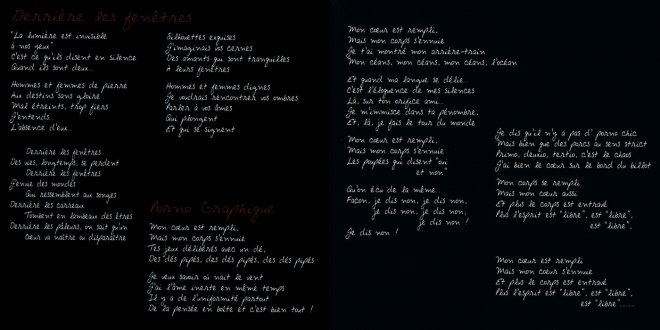 Derrière les fenêtres
"La lumière est invisible
à nos yeux"
C'est ce qu'ils disent en silence
Quand ils sont deux...
Hommes et femmes de pierre
Aux destins sans gloire
Mal étreints, trop fiers
J'entends...
L'absence d'eux...
Derrière les fenêtres
Des vies, longtemps, se perdent
Derrière les fenêtres
J'envie des mondes
Qui ressemblent aux songes
Derrière les carreaux
Tombent en lambeau des êtres
Derrière les pâleurs, on sait qu'un
Cœur va naître ou disparaître
Silhouettes exquises
J'imaginais vos cernes
Des amants qui sont tranquilles
À leurs fenêtres
Hommes et femmes dignes
Je voudrais rencontrer vos ombres
Parler à vos âmes
Qui plongent
Et qui se signent
Porno Graphique
Mon cœur est rempli,
Mais mon corps s'ennuie
Tes jeux délibérés avec un dé,
Des dés pipés, des dés pipés, des dés pipés
Je veux savoir où naît le vent
J'ai l'âme inerte en même temps
Il y a de l'uniformité partout
De la pensée en boîte et c'est bien tout !
Mon cœur est rempli,
Mais mon corps s'ennuie
Je t'ai montré mon arrière-train
Mon céans, mon céans, mon céans, l'océan
Et quand ma langue se délie...
C'est l'éloquence de mes silences
Là, sur ton orifice ami...
Je m'immisce dans ta pénombre,
Et, là, je fais le tour du monde
Mon cœur est rempli,
Mais mon corps s'ennuie
Les poupées qui disent "oui
et non"
Qu'on écu de la même...
Façon, je dis non, je dis non,
je dis non, je dis non,
je dis non !
Je dis non !
Je dis qu'il n'y a pas d' porno chic
Mais bien que des porcs au sens strict
Primo, deuxio, tertio, c'est le chaos
J'ai bien le cœur sur le bord du billot
Mon corps se remplit
Mais mon cœur aussi
Et plus le corps est entravé
Plus l'esprit est "libre", est "libre",
est "libre"..
Mon cœur est rempli
Mais mon cœur s'ennuie
Et plus le corps est entravé
Plus l'esprit est "libre", est "libre",
est "libre"......